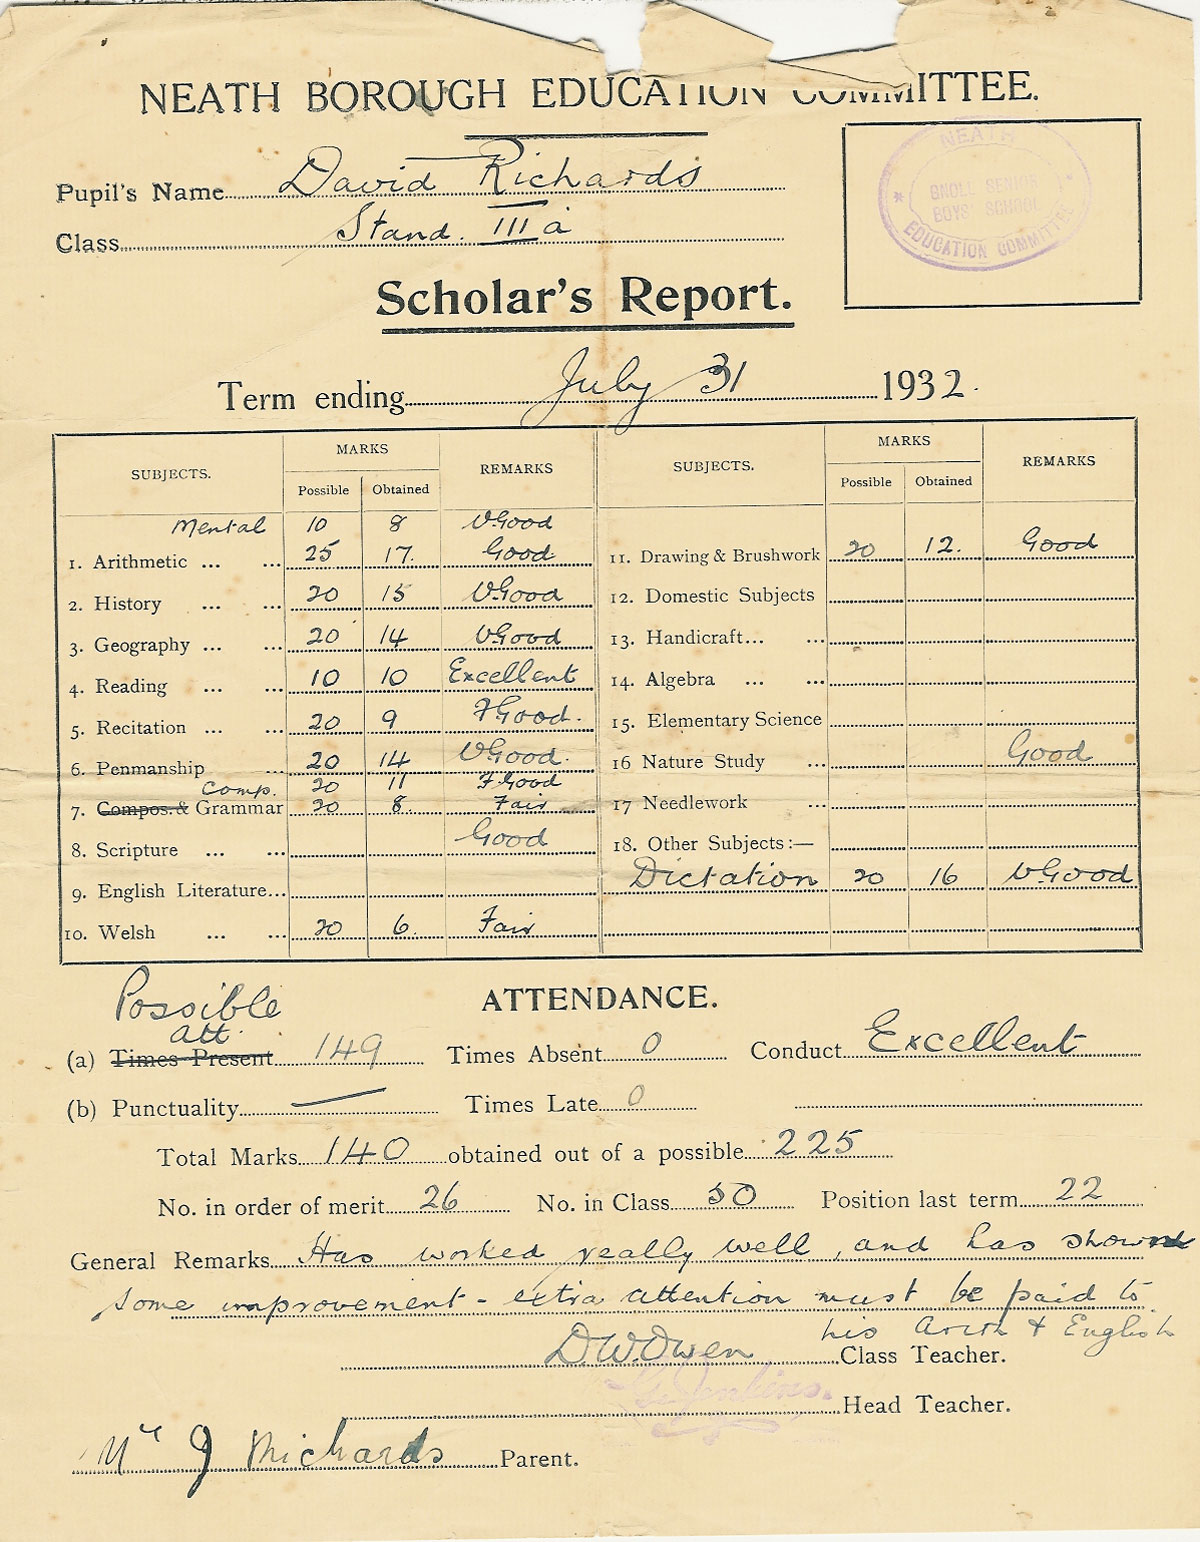 NEATH BOROUGH EDUCATION COMMITTEE.
Pupil's Name David Richards
Class Stand. III a
NEATH
GNOLL SENIOR
BOYS SCHOOL
EDUCATION COMMITTEE
Scholar's Report.
Term ending July 31 1932.
SUBJECTS. MARKS REMARKS SUBJECTS. MARKS REMARKS
Possible Obtained Possible Obtained
Mental 10 8 V.Good
1. Arithmetic ... ... 25 17. Good 11. Drawing & Brushwork 20 12. Good
2. History ... ... 20 15 V.Good 12. Domestic Subjects
3. Geography ... ... 20 14 V.Good 13. Handicraft... ...
4. Reading ... ... 10 10 Excellent 14. Algebra ... ...
5. Recitation ... ... 20 9 F.Good. 15. Elementary Science
6. Penmanship ... 20 14 V.Good. 16 Nature Study ... Good
Comp. 20 11 F.Good
7. Compos. & Grammar 20 8. Fair 17 Needlework ...
8. Scripture ... ... Good 18. Other Subjects:—
9. English Literature... Dictation 20 16 V.Good
10. Welsh ... ... 20 6. Fair
Possible
ATTENDANCE.
att.
(a) Times Present 149 Times Absent 0 Conduct Excellent
(b) Punctuality — Times Late 0
Total Marks 140 obtained out of a possible 225
No. in order of merit 26 No. in Class 50 Position last term 22
General Remarks Has worked really well, and has shown
some improvement - extra attention must be paid to
his Arith & English
D.W.Owen Class Teacher.
Jenkins. Head Teacher.
Mr J Richards Parent.